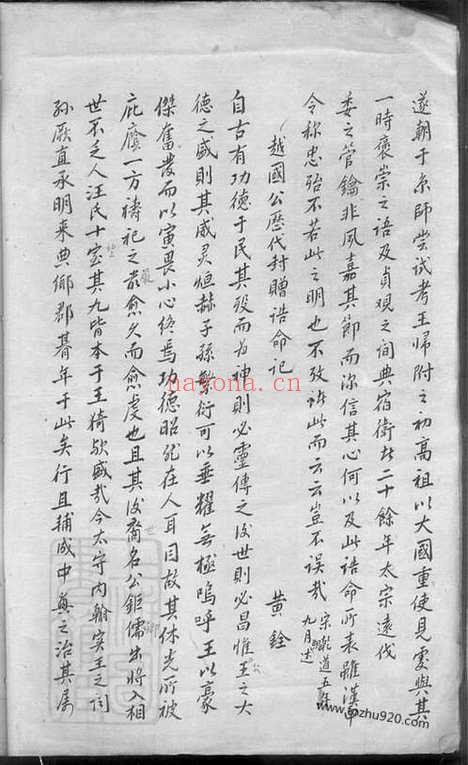 遂朝于京師嘗試考王歸附之初高祖以大國重使見處與其
一時褒崇之語及貞觀之間典宿衛者二十餘年太宗遠伐
委之管鑰非夙嘉其節而深信其心何以及此誥命所表雖漢
令称忠殆不若此之明也不攷諸此而云云豈不误哉 宋乾道五年九月
越國公歷代封贈誥命記 黄銓
自古有功德于民其殁而为神則必靈傳之後世則必昌惟王之大
德之盛則其威灵烜赫子孫繁衍可以垂耀無極嗚呼王以豪
傑奮發而以寅畏小心终焉功德昭然在人耳目故其休光所被
庇庥一方禱祀之嚴愈久而愈虔也且其後裔名公鉅儒出將入相
世不乏人汪氏十室其九皆本于王猗欤盛哉今太守内翰实王之
孫厥直承明來典鄉郡朞年于此矣行且辅成中興之治其属
nayona.cn
www.pozhu920.com